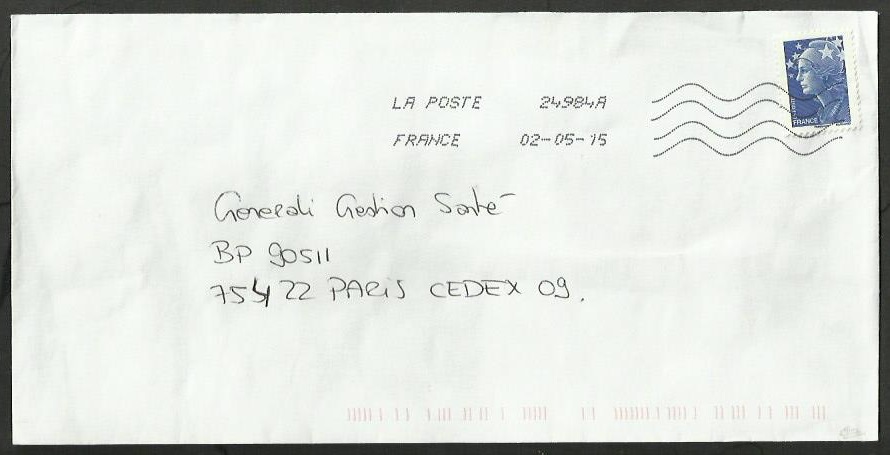 LA POSTE 24984A
FRANCE 02-05-15
FRANCE
Generali Gestion Santé
BP 90511
75422 PARIS CEDEX 09.